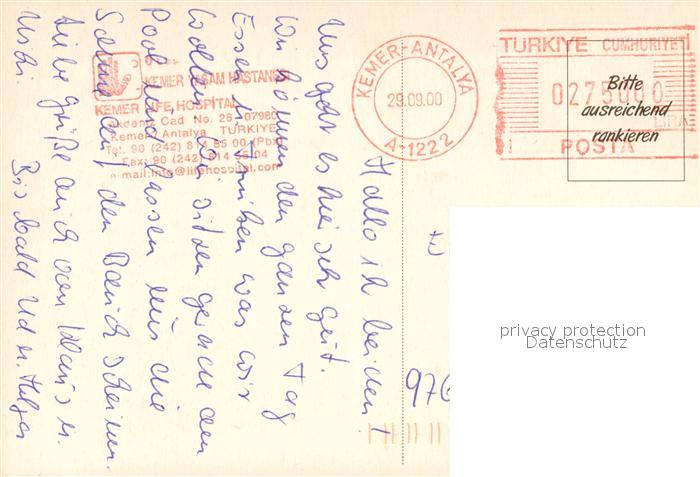 Hallo ihr beiden!
Uns geht es hier sehr gut.
Wir können den ganzen Tag
Essen u. trinken was wir
wollen. Wir sitzen gerade am
Pool und lassen uns die
Sonne auf den Bauch scheinen.
Liebe Grüße auch von Klaus u.
Uschi.
Bis bald
KEMER YAŞAM HASTANESİ
KEMER LIFE HOSPITAL
Akdeniz Cad No. 26 07980
Kemer Antalya TURKIYE
Tel: 90 (242) 814 55 00 (Pbx)
Fax: 90 (242) 814 04
e-mail:info@lifehospital.com
KEMER-ANTALYA
29.09.00
A-1222
TURKIYE CUMHURIYETİ
0275000
LİRA
POSTA
Bitte
ausreichend
frankieren
976
privacy protection
Datenschutz